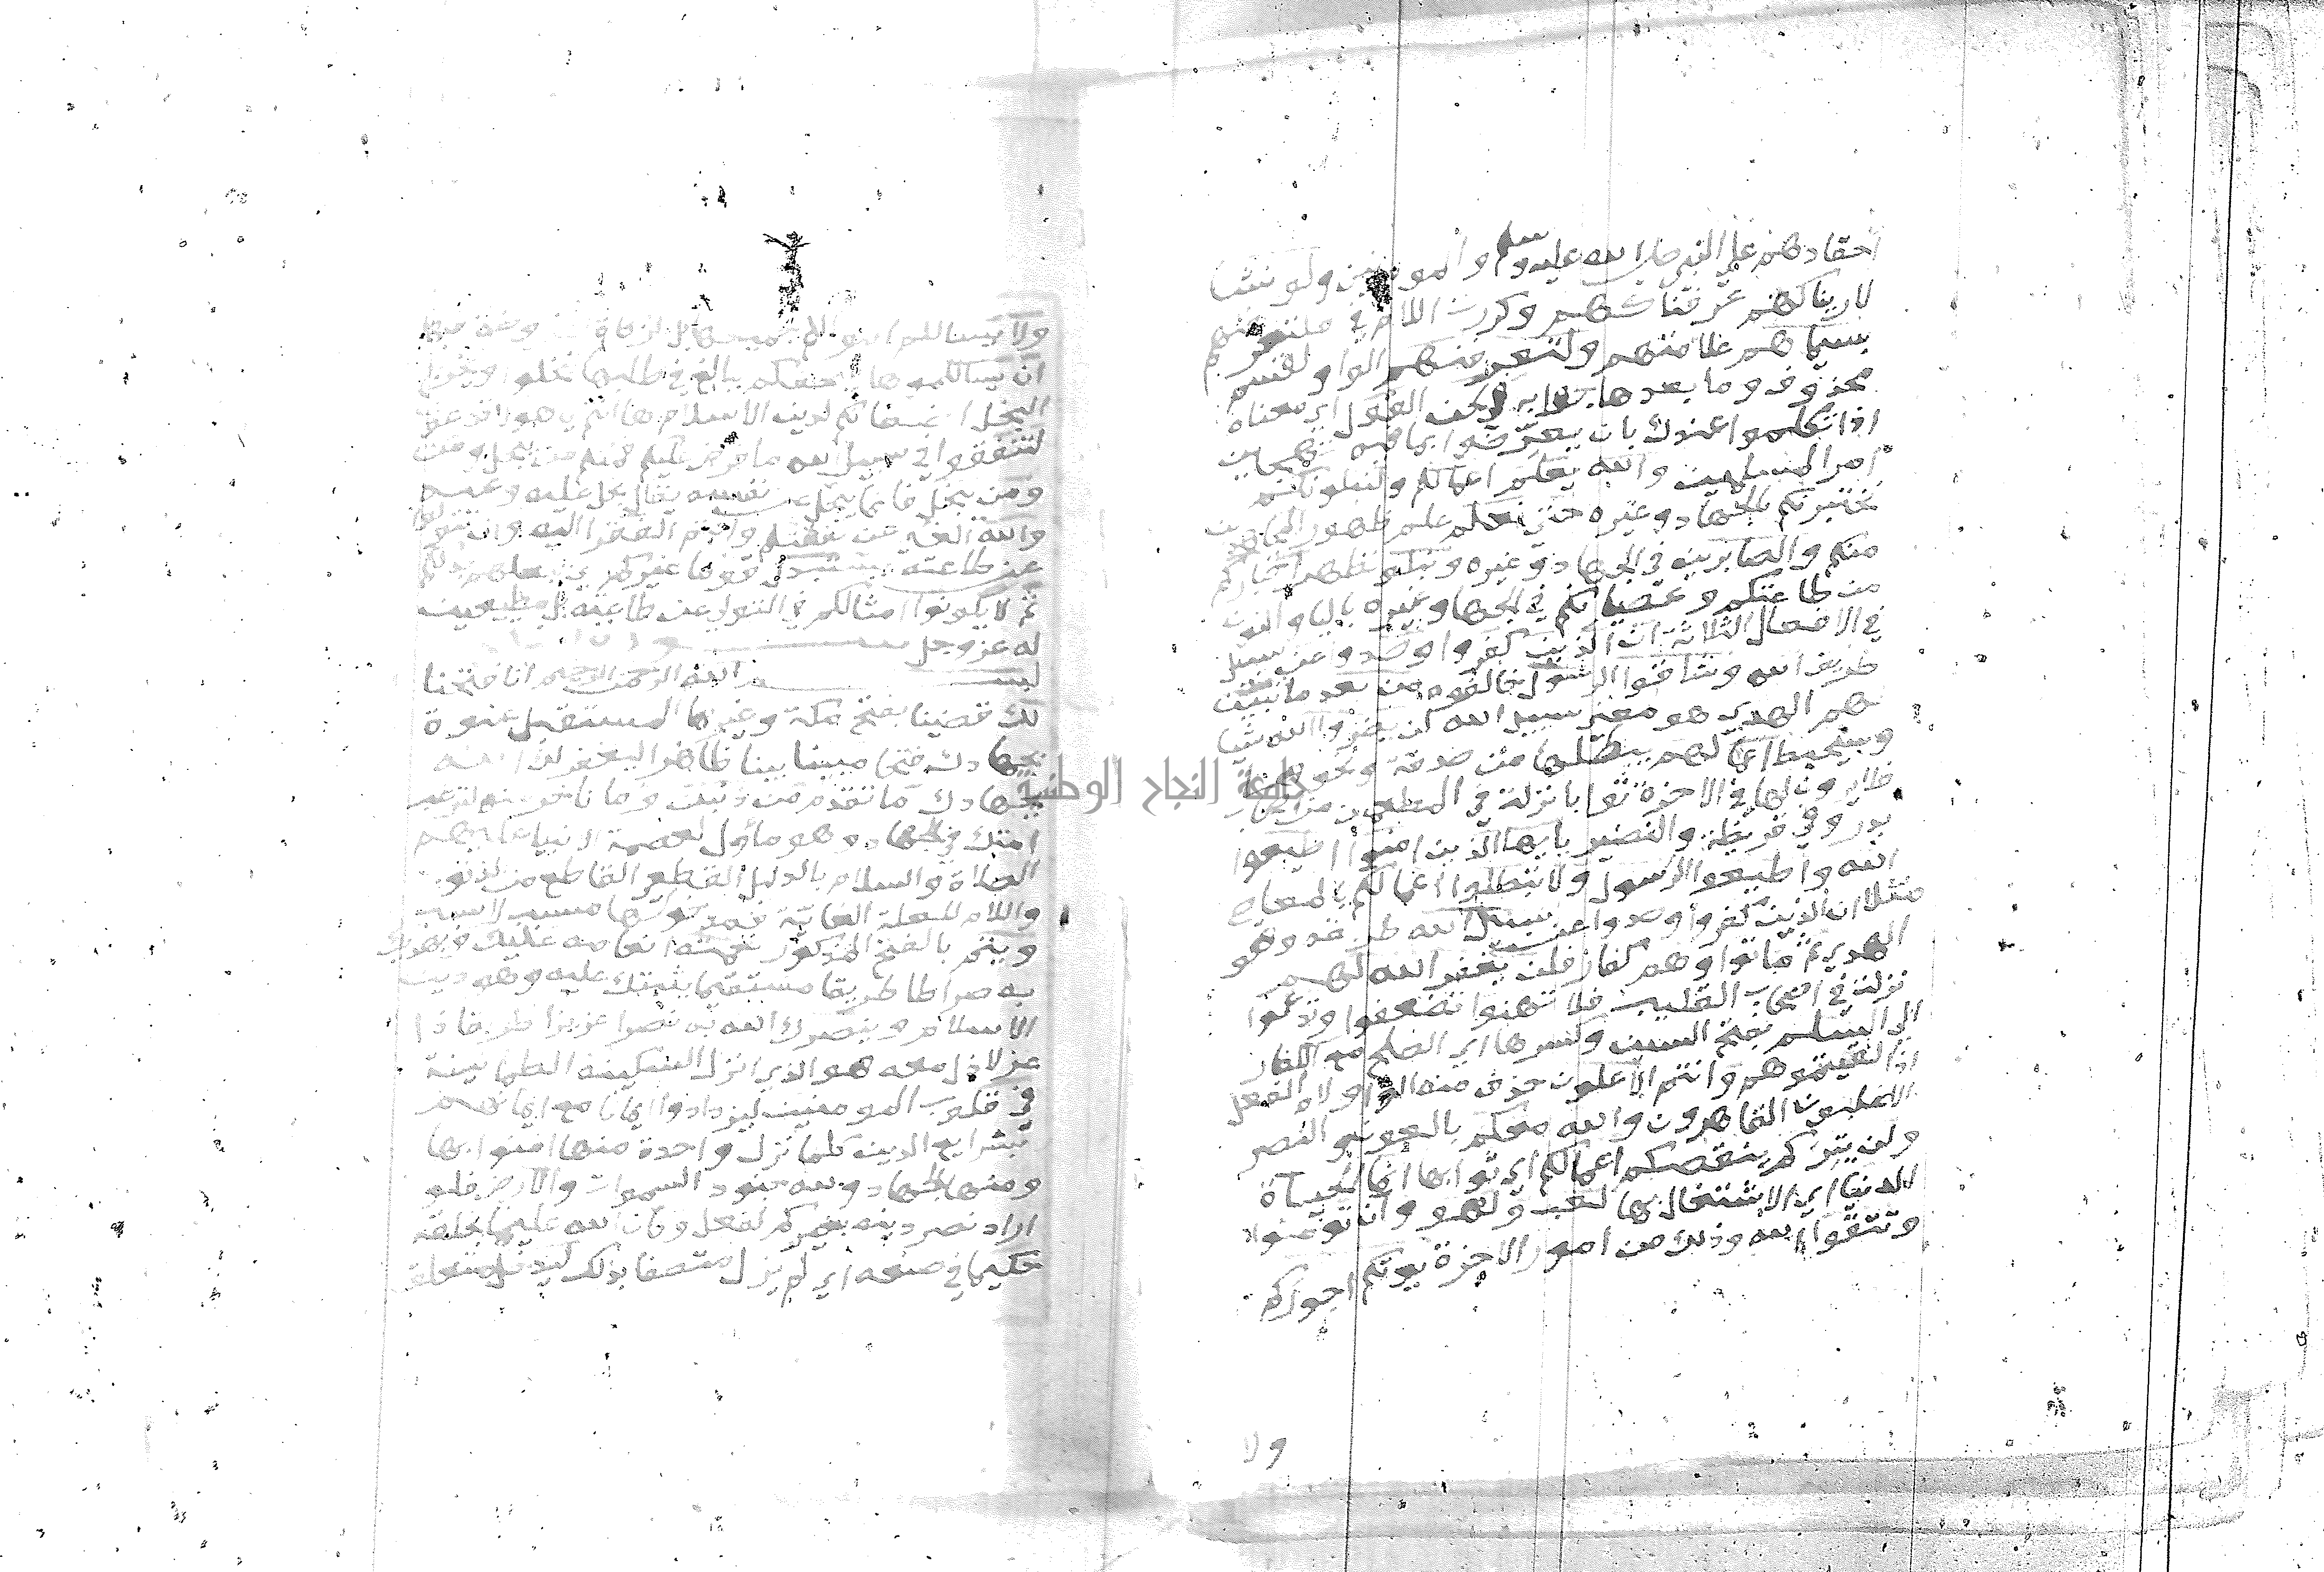 احقادهم علي النبي صلي الله عليه وسلم والمومنين ولو نشا
لاريناكهم عرفناكهم وكررت اللام في فلتعرفتهم
بسيماهم علامتهم ولتعرفنهم الواو لقسم
محذوف وما بعدها جوابه في لحن القول اي معناه
اذا تكلموا عندك بان يعرضوا بما فيه تهجين
امر المسلمين والله يعلم اعمالكم ولنبلونكم
نختبرنكم بالجهاد وغيره حتي نعلم علم ظهور المجاهدين
منكم والصابرين في الجهاد وغيره ونبلو نظهر اخباركم
من طاعتكم وعصيانكم في الجهاد وغيره باليا والنون
في الافعال الثلاثة ان الذين كفروا وصدوا عن سبيل
طريق الله وشاقوا الرسول خالفوه من بعد ما تبين
لهم الهدي هو معني سبيل الله لن يضروا الله شيا
وسيحبط اعمالهم يبطلها من صدقة ونحوها فلا
يرون لها في الاخرة ثوابا نزلت في المطعمين من اصحاب
بدر وفي قريظة والنضير يايها الذين امنوا اطيعوا
الله واطيعوا الرسول ولا تبطلوا اعمالكم بالمعاصي
مثلا ان الذين كفروا وصدوا عن سبيل الله طريقه وهو
الهدي ثم ماتوا وهم كفار فلن يغفر الله لهم
نزلت في اصحاب القليب فلا تهنوا تضعفوا وتدعوا
الي السلم بفتح السين وكسرها اي الصلح مع الكفار
اذا لقيتموهم وانتم الاعلون حذف منه الواو لام الفعل
الاغلبون القاهرون والله معكم بالعون والنصر
ولن يتركم ينقصكم اعمالكم اي ثوابها انما الحياة
الدنيا اي الاشتغال بها لعب ولهو وان تومنوا
وتتقوا الله وذلك من امور الاخرة يوتكم اجوركم
ولا
ولا يسالكم اموالكم جميعها بل الزكاة المفروضة فيها
ان يسالكموها فيحفكم يبالغ في طلبها تبخلوا ويخرج
البخل اضغانكم لدين الاسلام ها انتم يا هولا تدعون
لتنفقوا في سبيل الله ما فرض عليكم فمنكم من يبخل
ومن يبخل فانما يبخل عن نفسه يقال بخل عليه وعنه
والله الغني عن نفقتكم وانتم الفقرا اليه وان تتولوا
عن طاعته يستبدل قوما غيركم يجعلهم بدلكم
ثم لا يكونوا امثالكم في التولي عن طاعته بل مطيعين
له عز وجل
بسم الله الرحمن الرحيم انا فتحنا
لك قضينا بفتح مكة وغيرها المستقبل عنوة
بجهادك فتحا مبينا بينا ظاهرا ليغفر لك الله
بجهادك ما تقدم من ذنبك وما تاخر منه لترغب
امتك في الجهاد وهو مأول لعصمة الانبيا عليهم
الصلاة والسلام بالدليل القطعي القاطع من الذنوب
واللام للعلة الغائية فمدخولها مسبب لا سبب
ويتم بالفتح المذكور نعمته انعامه عليك ويهديك
به صراطا طريقا مستقيما يثبتك عليه وهو دين
الاسلام وينصرك الله به نصرا عزيزا ذا
عز لا ذل معه هو الذي انزل السكينة الطمانينة
في قلوب المومنين ليزدادوا ايمانا مع ايمانهم
بشرايع الدين كلما نزل واحدة منها امنوا بها
ومنها الجهاد ولله جنود السموات والارض فلو
اراد نصر دينه بغيركم لفعل وكان الله عليما بخلقه
حكيما في صنعه اي لم يزل متصفا بذلك ليدخل متعلق
جامعة النجاح الوطنية